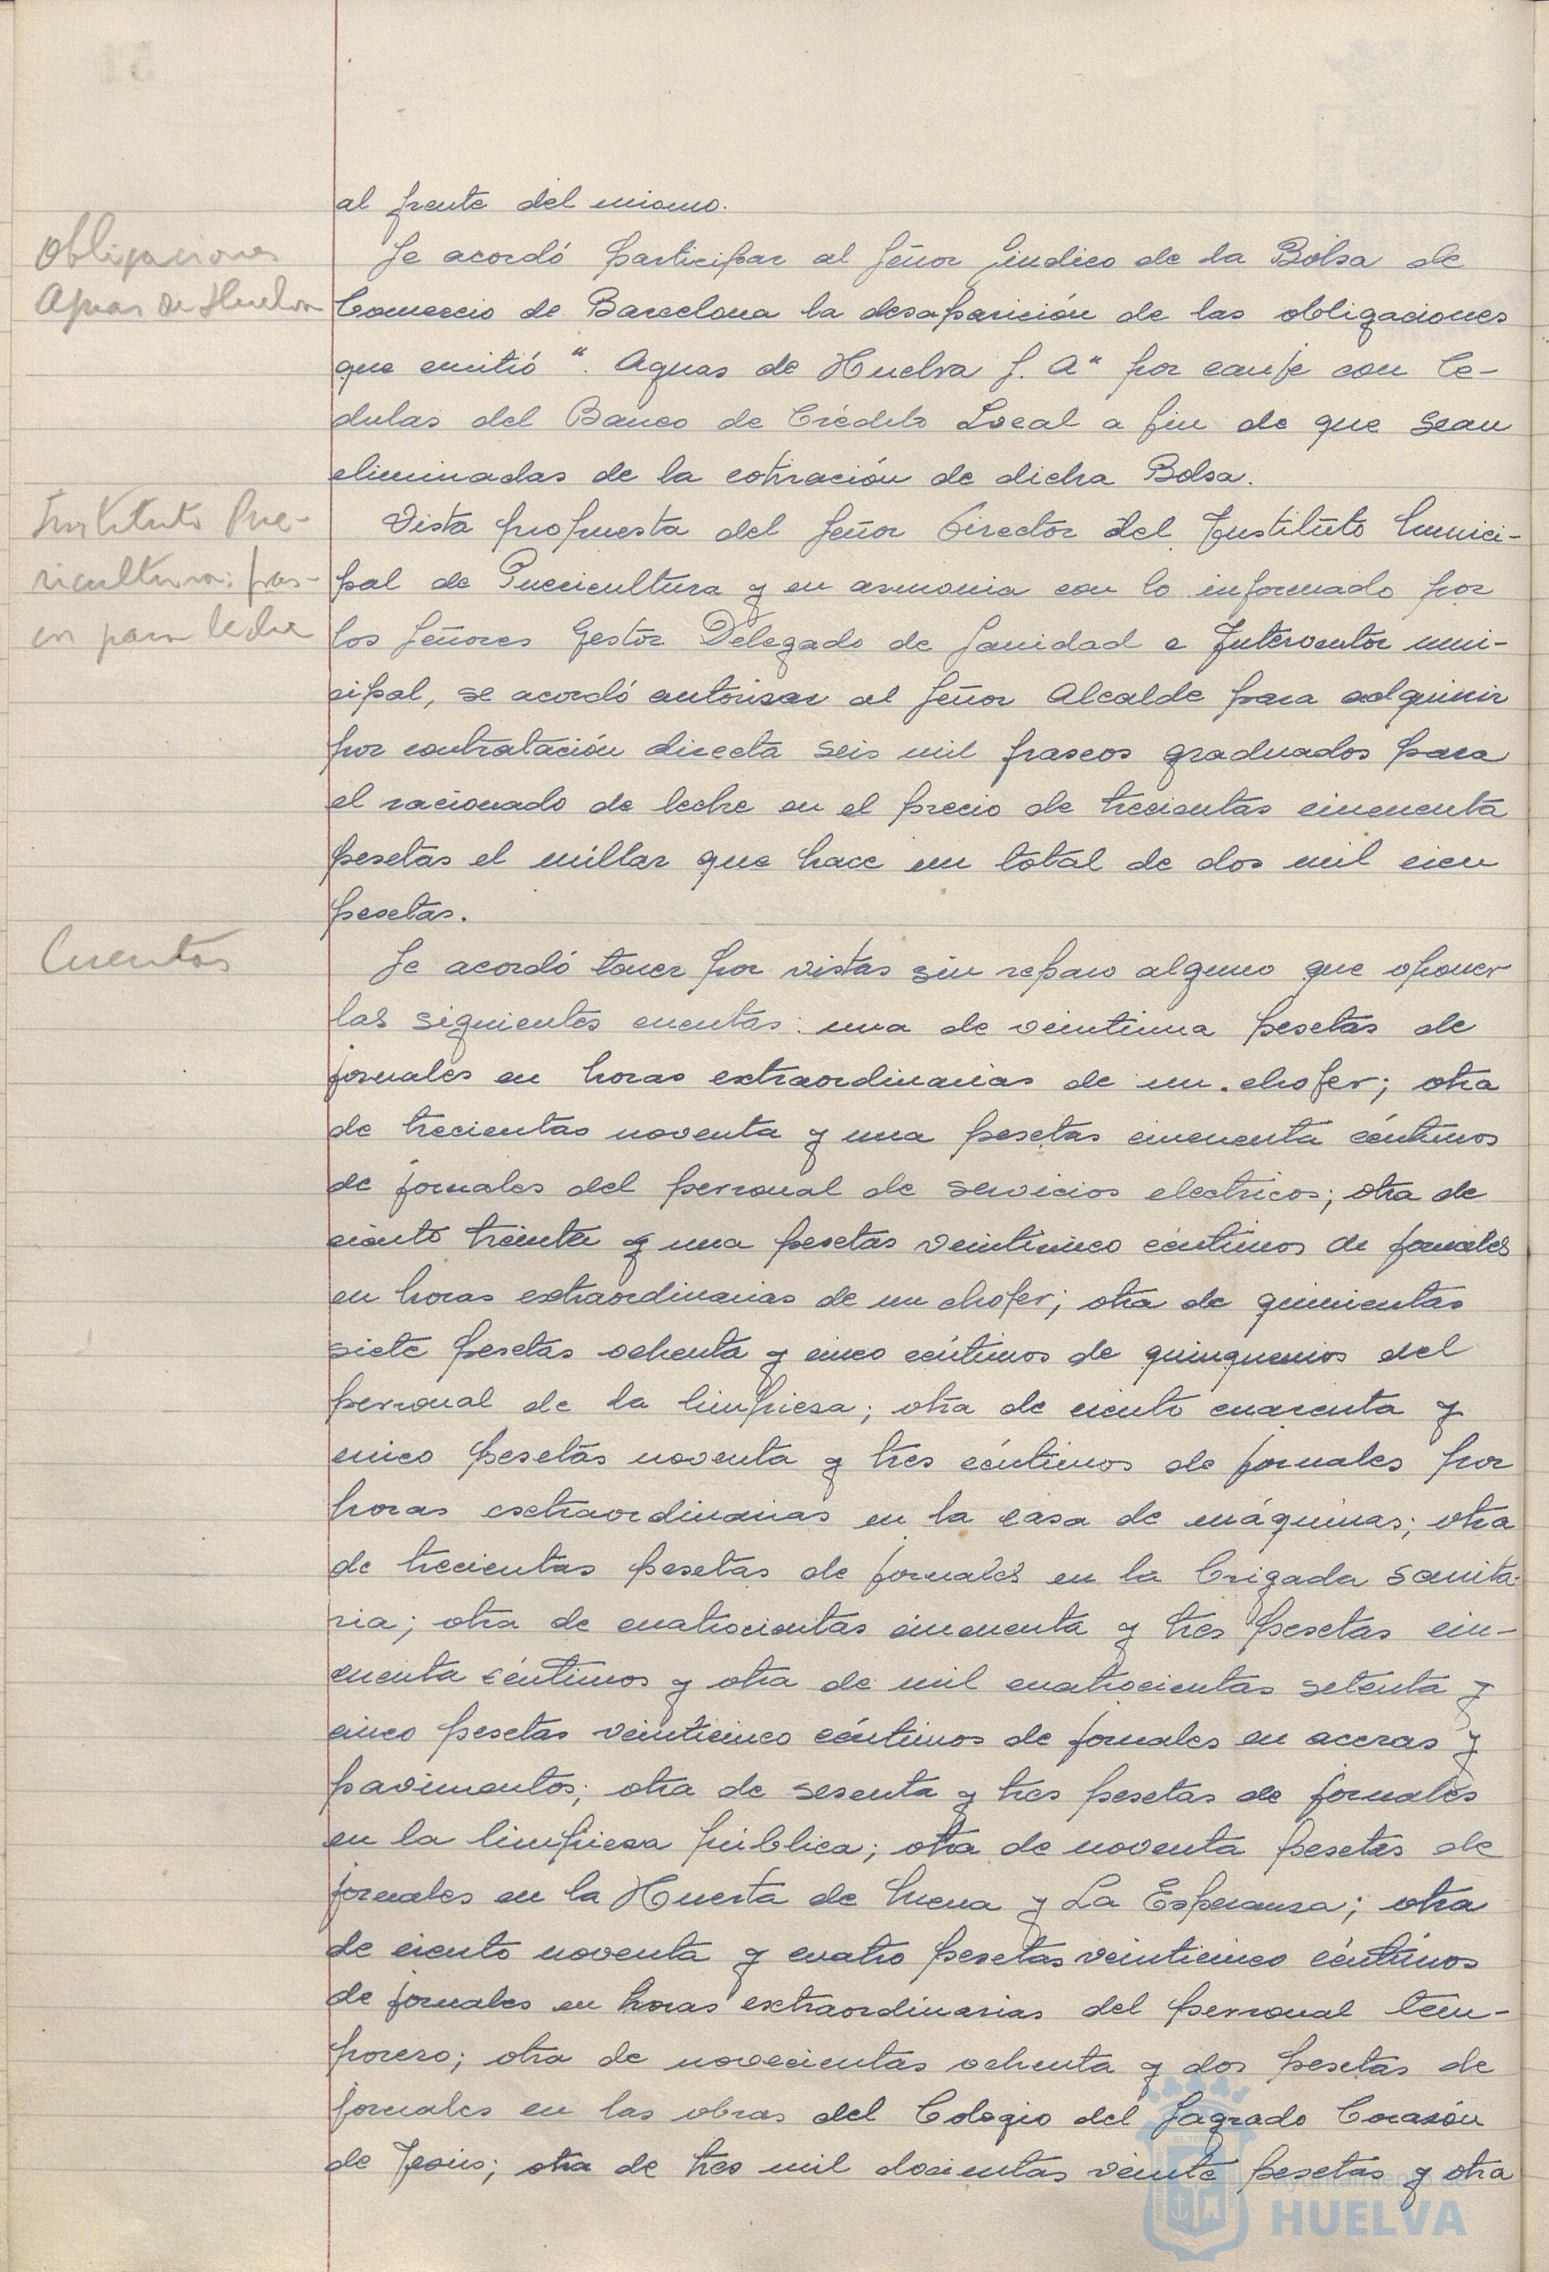 al frente del mismo.
Obligaciones
Aguas de Huelva
Se acordó participar al Señor Síndico de la Bolsa de
Comercio de Barcelona la desaparición de las obligaciones
que emitió "Aguas de Huelva S. A" por canje con Ce-
dulas del Banco de Crédito Local a fin de que sean
eliminadas de la cotización de dicha Bolsa.
Instituto Pue-
ricultura: fras-
cos para leche
Vista propuesta del Señor Director del Instituto Munici-
pal de Puericultura y en armonia con lo informado por
los Señores Gestor Delegado de Sanidad e Interventor muni-
cipal, se acordó autorizar al Señor Alcalde para adquirir
por contratación directa seis mil frascos graduados para
el racionado de leche en el precio de trecientas cincuenta
pesetas el millar que hace un total de dos mil cien
pesetas.
Cuentas
Se acordó tener por vistas sin reparo alguno que oponer
las siguientes cuentas: una de veintiuna pesetas de
jornales en horas extraordinarias de un chofer; otra
de trecientas noventa y una pesetas cincuenta céntimos
de jornales del personal de servicios electricos; otra de
ciento treinta y una pesetas veinticinco céntimos de jornales
en horas extraordinarias de un chofer; otra de quinientas
siete pesetas ochenta y cinco céntimos de quinquenios del
personal de la limpieza; otra de ciento cuarenta y
cinco pesetas noventa y tres céntimos de jornales por
horas extraordinarias en la casa de máquinas; otra
de trecientas pesetas de jornales en la brigada sanita-
ria; otra de cuatrocientas cincuenta y tres pesetas cin-
cuenta céntimos y otra de mil cuatrocientas setenta y
cinco pesetas veinticinco céntimos de jornales en aceras y
pavimentos; otra de sesenta y tres pesetas de jornales
en la limpieza pública; otra de noventa pesetas de
jornales en la Huerta de Mena y La Esperanza; otra
de ciento noventa y cuatro pesetas veinticinco céntimos
de jornales en horas extraordinarias del personal tem-
porero; otra de novecientas ochenta y dos pesetas de
jornales en las obras del Colegio del Sagrado Corazón
de Jesús; otra de tres mil docientas veinte pesetas y otra
Ayuntamiento de
HUELVA